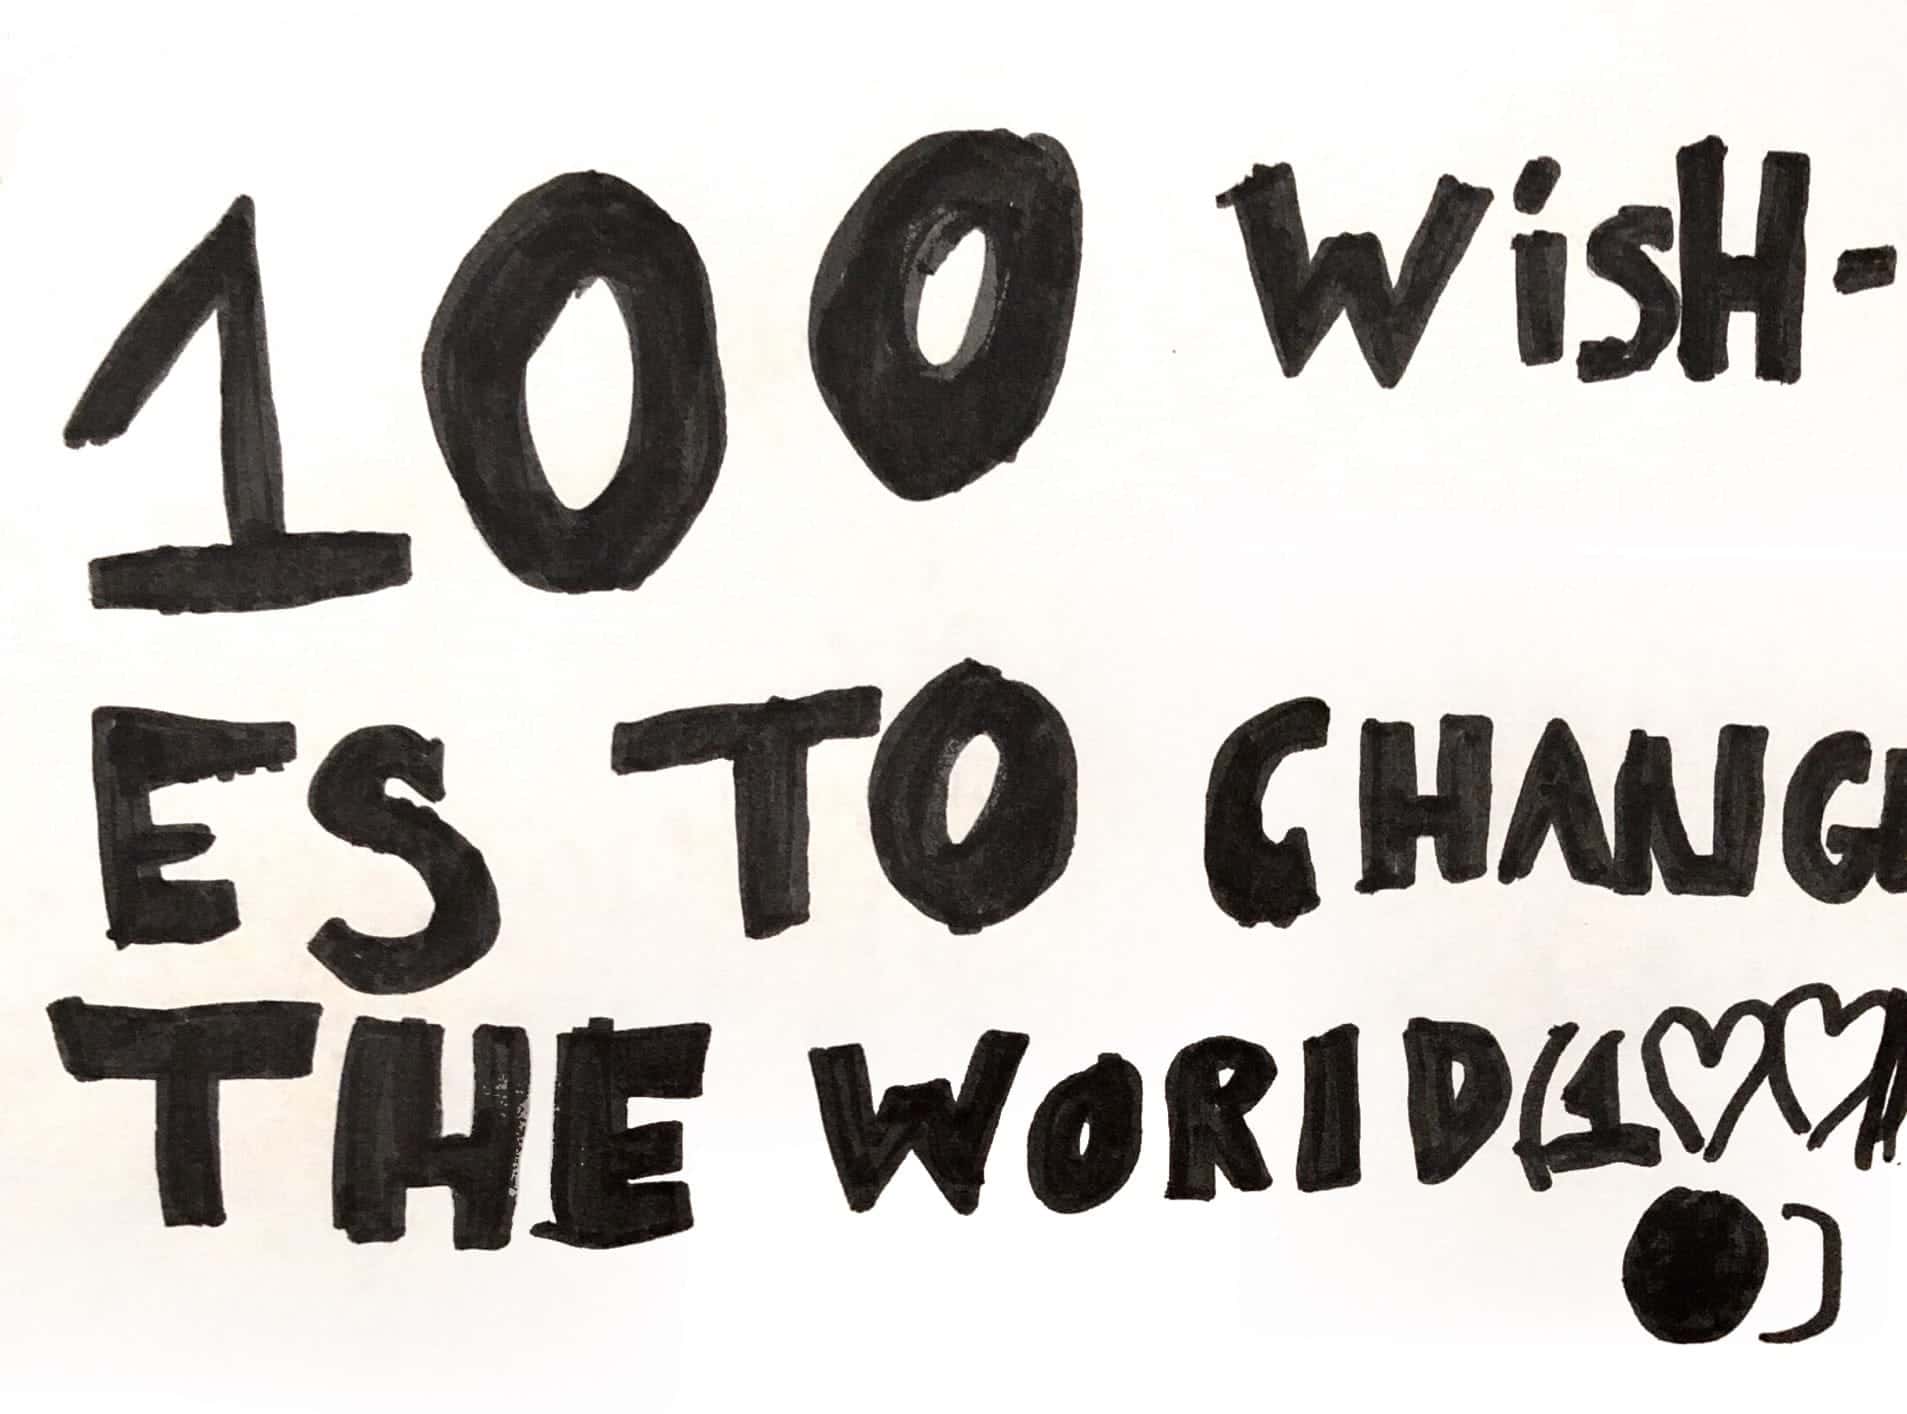 100 WisH-
ES TO CHANGE
THE WORlD(1♡♡
●)